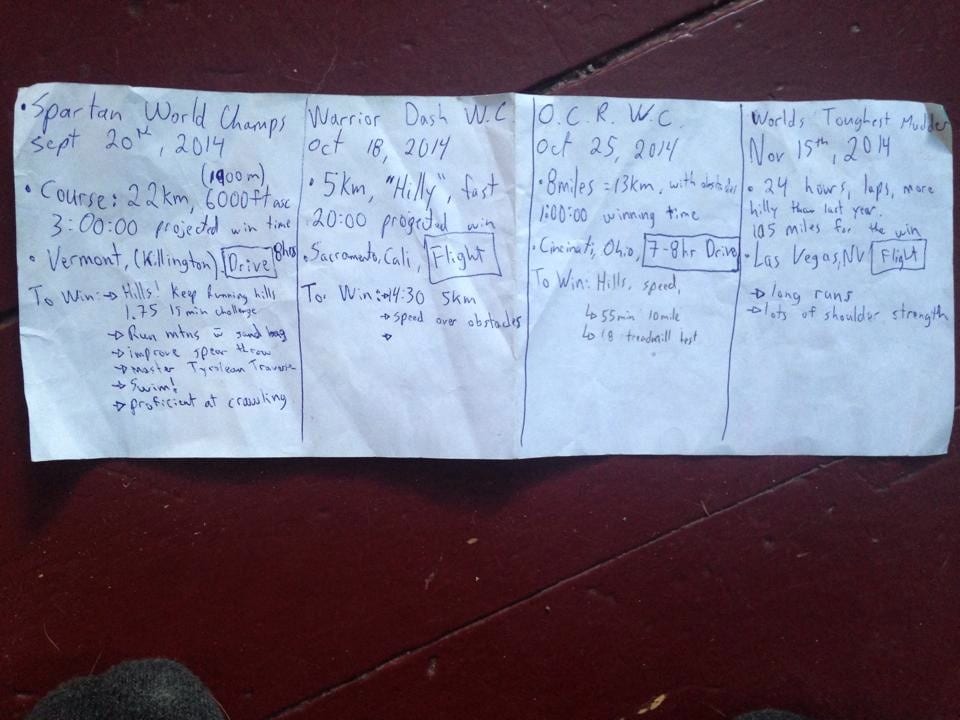 • Spartan World Champs
Sept 20th, 2014
(1900m)
• Course: 22km, 6000ft asc
3:00:00 projected win time
• Vermont, (Killington) Drive 8hrs
To Win: → Hills! Keep Running hills
1.75 15 min challenge
→ Run mtns w̄ sand bag
→ improve spear throw
→ master Tyrolean Traverse
→ Swim!
→ proficient at crawling
Warrior Dash W.C
Oct 18, 2014
• 5km, "Hilly", fast
20:00 projected win
• Sacramento, Cali, Flight
To Win: → 14:30 5km
→ speed over obstacles
→
O.C.R. W.C.
Oct 25, 2014
• 8miles = 13km, with obstacles
1:00:00 winning time
• Cincinati, Ohio, 7-8hr Drive
To Win: Hills, speed,
↳ 55min 10mile
↳ 18 treadmill test
Worlds Toughest Mudder
Nov 15th, 2014
• 24 hours, laps, more
hilly than last year.
105 miles for the win
• Las Vegas, NV Flight
→ long runs
→ lots of shoulder strength